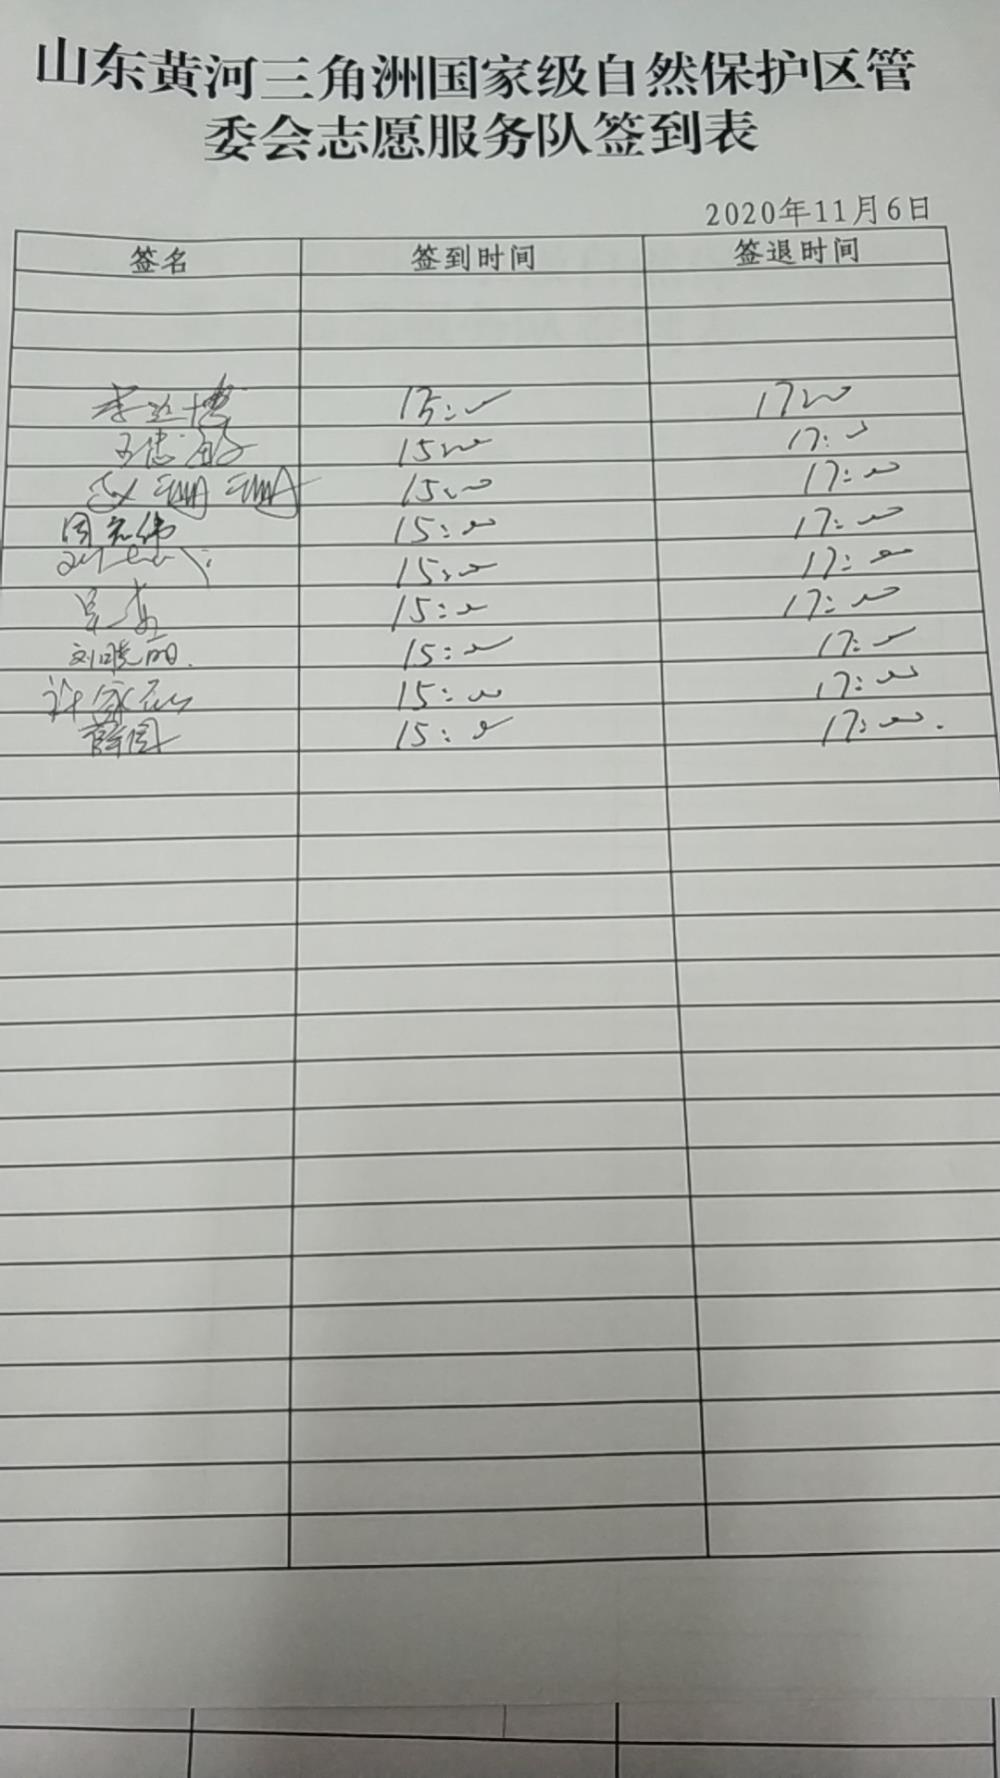 山东黄河三角洲国家级自然保护区管
委会志愿服务队签到表
2020年11月6日
签名 签到时间 签退时间
李 博 15:00 17:00
15:00 17:00
赵珊珊 15:00 17:00
周 伟 15:00 17:00
15:00 17:00
15:00 17:00
刘晓丽 15:00 17:00
许家 15:00 17:00
薛园 15:00 17:00